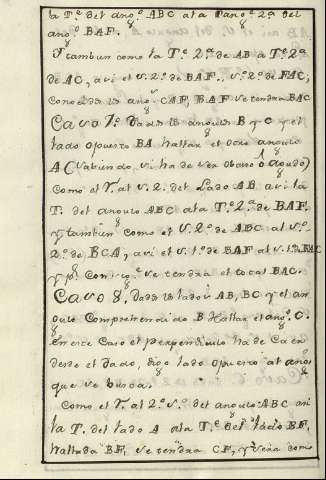 la T.ᵉ del ang.º ABC ala Tang.ᵉ 2.ª del
ang.º BAF.
Y tambien como la T.ᵉ 2.ª de AB a T.ᵉ 2.ª
de AC, asi el S. 2.º de BAF. S. 2.º de FAC,
Conocidos los ang.ˢ CAF, BAF se tendra BAC
Caso 7.º Dados los angulos B y C y el
lado opuesto BA hallar el otro angulo
A (sabiendo si ha de ser obtuso ó agudo)
Como el R. al S. 2. del Lado AB asi la
T. del angulo ABC ala T.ᵉ 2.ª de BAF,
y tambien como el S. 2.º de ABC al S.º
2.º de BCA, asi el S. 1.º de BAF al S. 1.º FAC
y p.ʳ se tendra el total BAC.
Caso 8, Dados los lados AB, BC y el an
gulo Comprehendido B Hallar el ang.º C.
En este Caso el perpendiculo ha de Caer
desde el dado, digo lado opuesto al ang.º
que se busca.
Como el R. al 2.º S.º del angulo ABC asi
la T. del lado A ala T.ᵉ del lado BF,
hallada BF, se tendra CF, y sera com